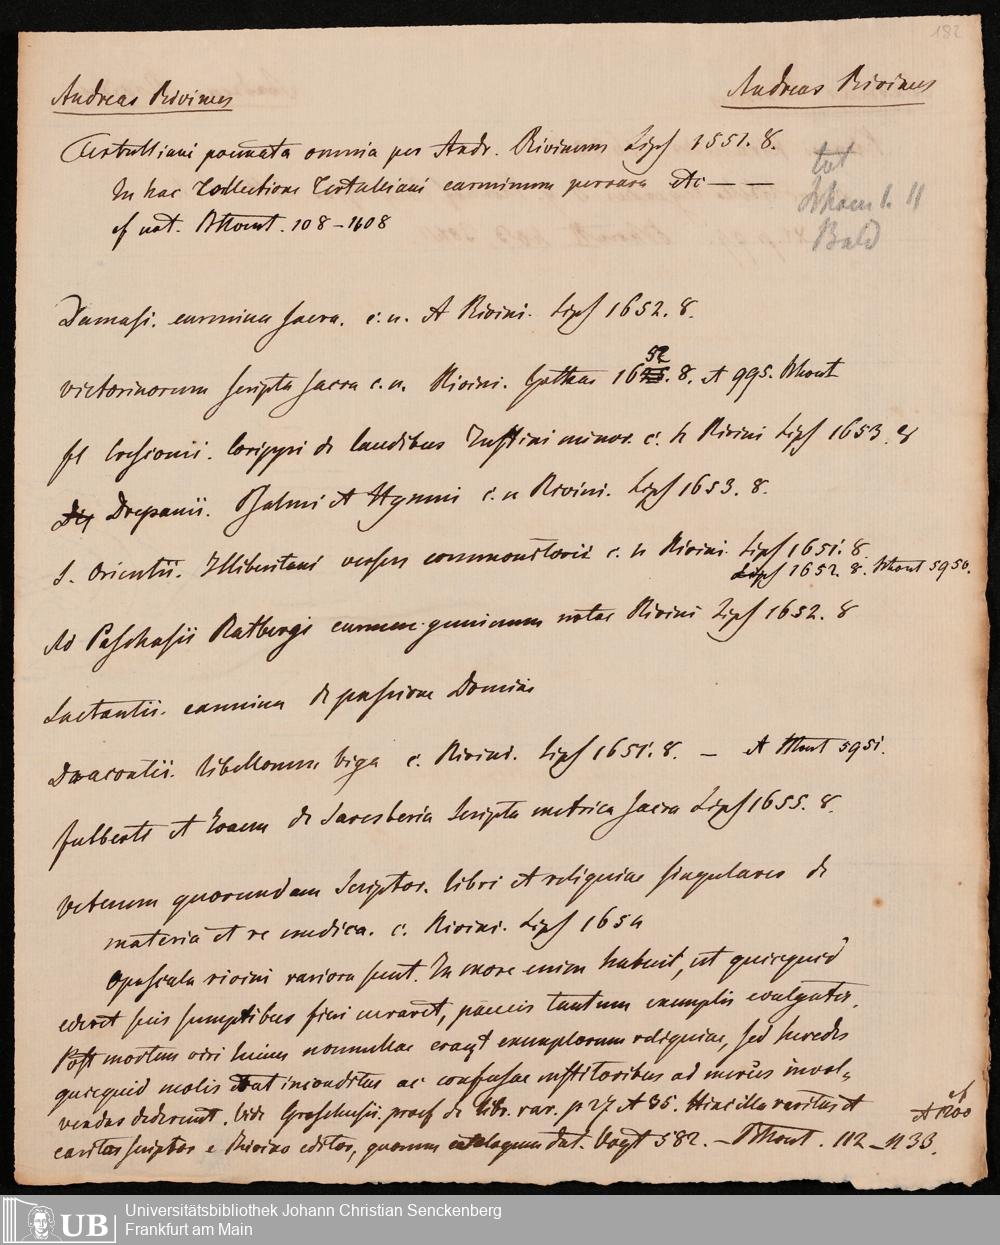 182
Andreas Rivinus
Andreas Rivinus
Tertulliani poemata omnia per Andr. Rivinum Lips 1551. 8.
In hac Collectione Tertulliani carminum perrara etc — —
cf not. Bthout. 108–1608
tot
Bald
Damasi. carmina sacra. c. n. A Rivini. Lips 1652. 8.
Victorinorum scripta sacra c. n. Rivini. Gothae 1652. 8. et 995. Bthout
fl Cresconii. Corippi de laudibus Justini minor. c. n Rivini Lips 1653. 8
Drepanii. Psalmi et Hymni c. n Rivini. Lips 1653. 8.
S. Orientii. Illiberitani versus commonitorii c. n Rivini. Lips 1651. 8.
Lips 1652. 8. Bthout 5950.
Ad Paschasii Ratbergi carmen geminum notae Rivini Lips 1652. 8
Lactantii. carmina de passione Domini
Dracontii. libellorum biga c. Rivini. Lips 1651. 8. — et Bthout 5951.
fulberti et de Saresberia Scripta metrica sacra Lips 1655. 8.
Veterum quorundam Scriptor. libri et reliquiae singulares de
materia et re medica. c. Rivini. Lips 1654
Opuscula rivini rariora sunt. In more enim habuit, ut quicquid
ederet suis sumptibus fieri curaret, paucis tantum exemplis evulgatis.
Post mortem viri huius nonnullae erant exemplorum reliquiae, sed heredes
quicquid molis erat inconditae ac confusae institoribus ad merces invol=
vendas dederunt. Vide Groschufii praef de libr. rar. p 27 et 35. Hinc illa raritas et
caritas scriptor e Rivino editor, quorum catalogum dat. Vogt 582. — Bthout. 112 — 1133.
et 1200